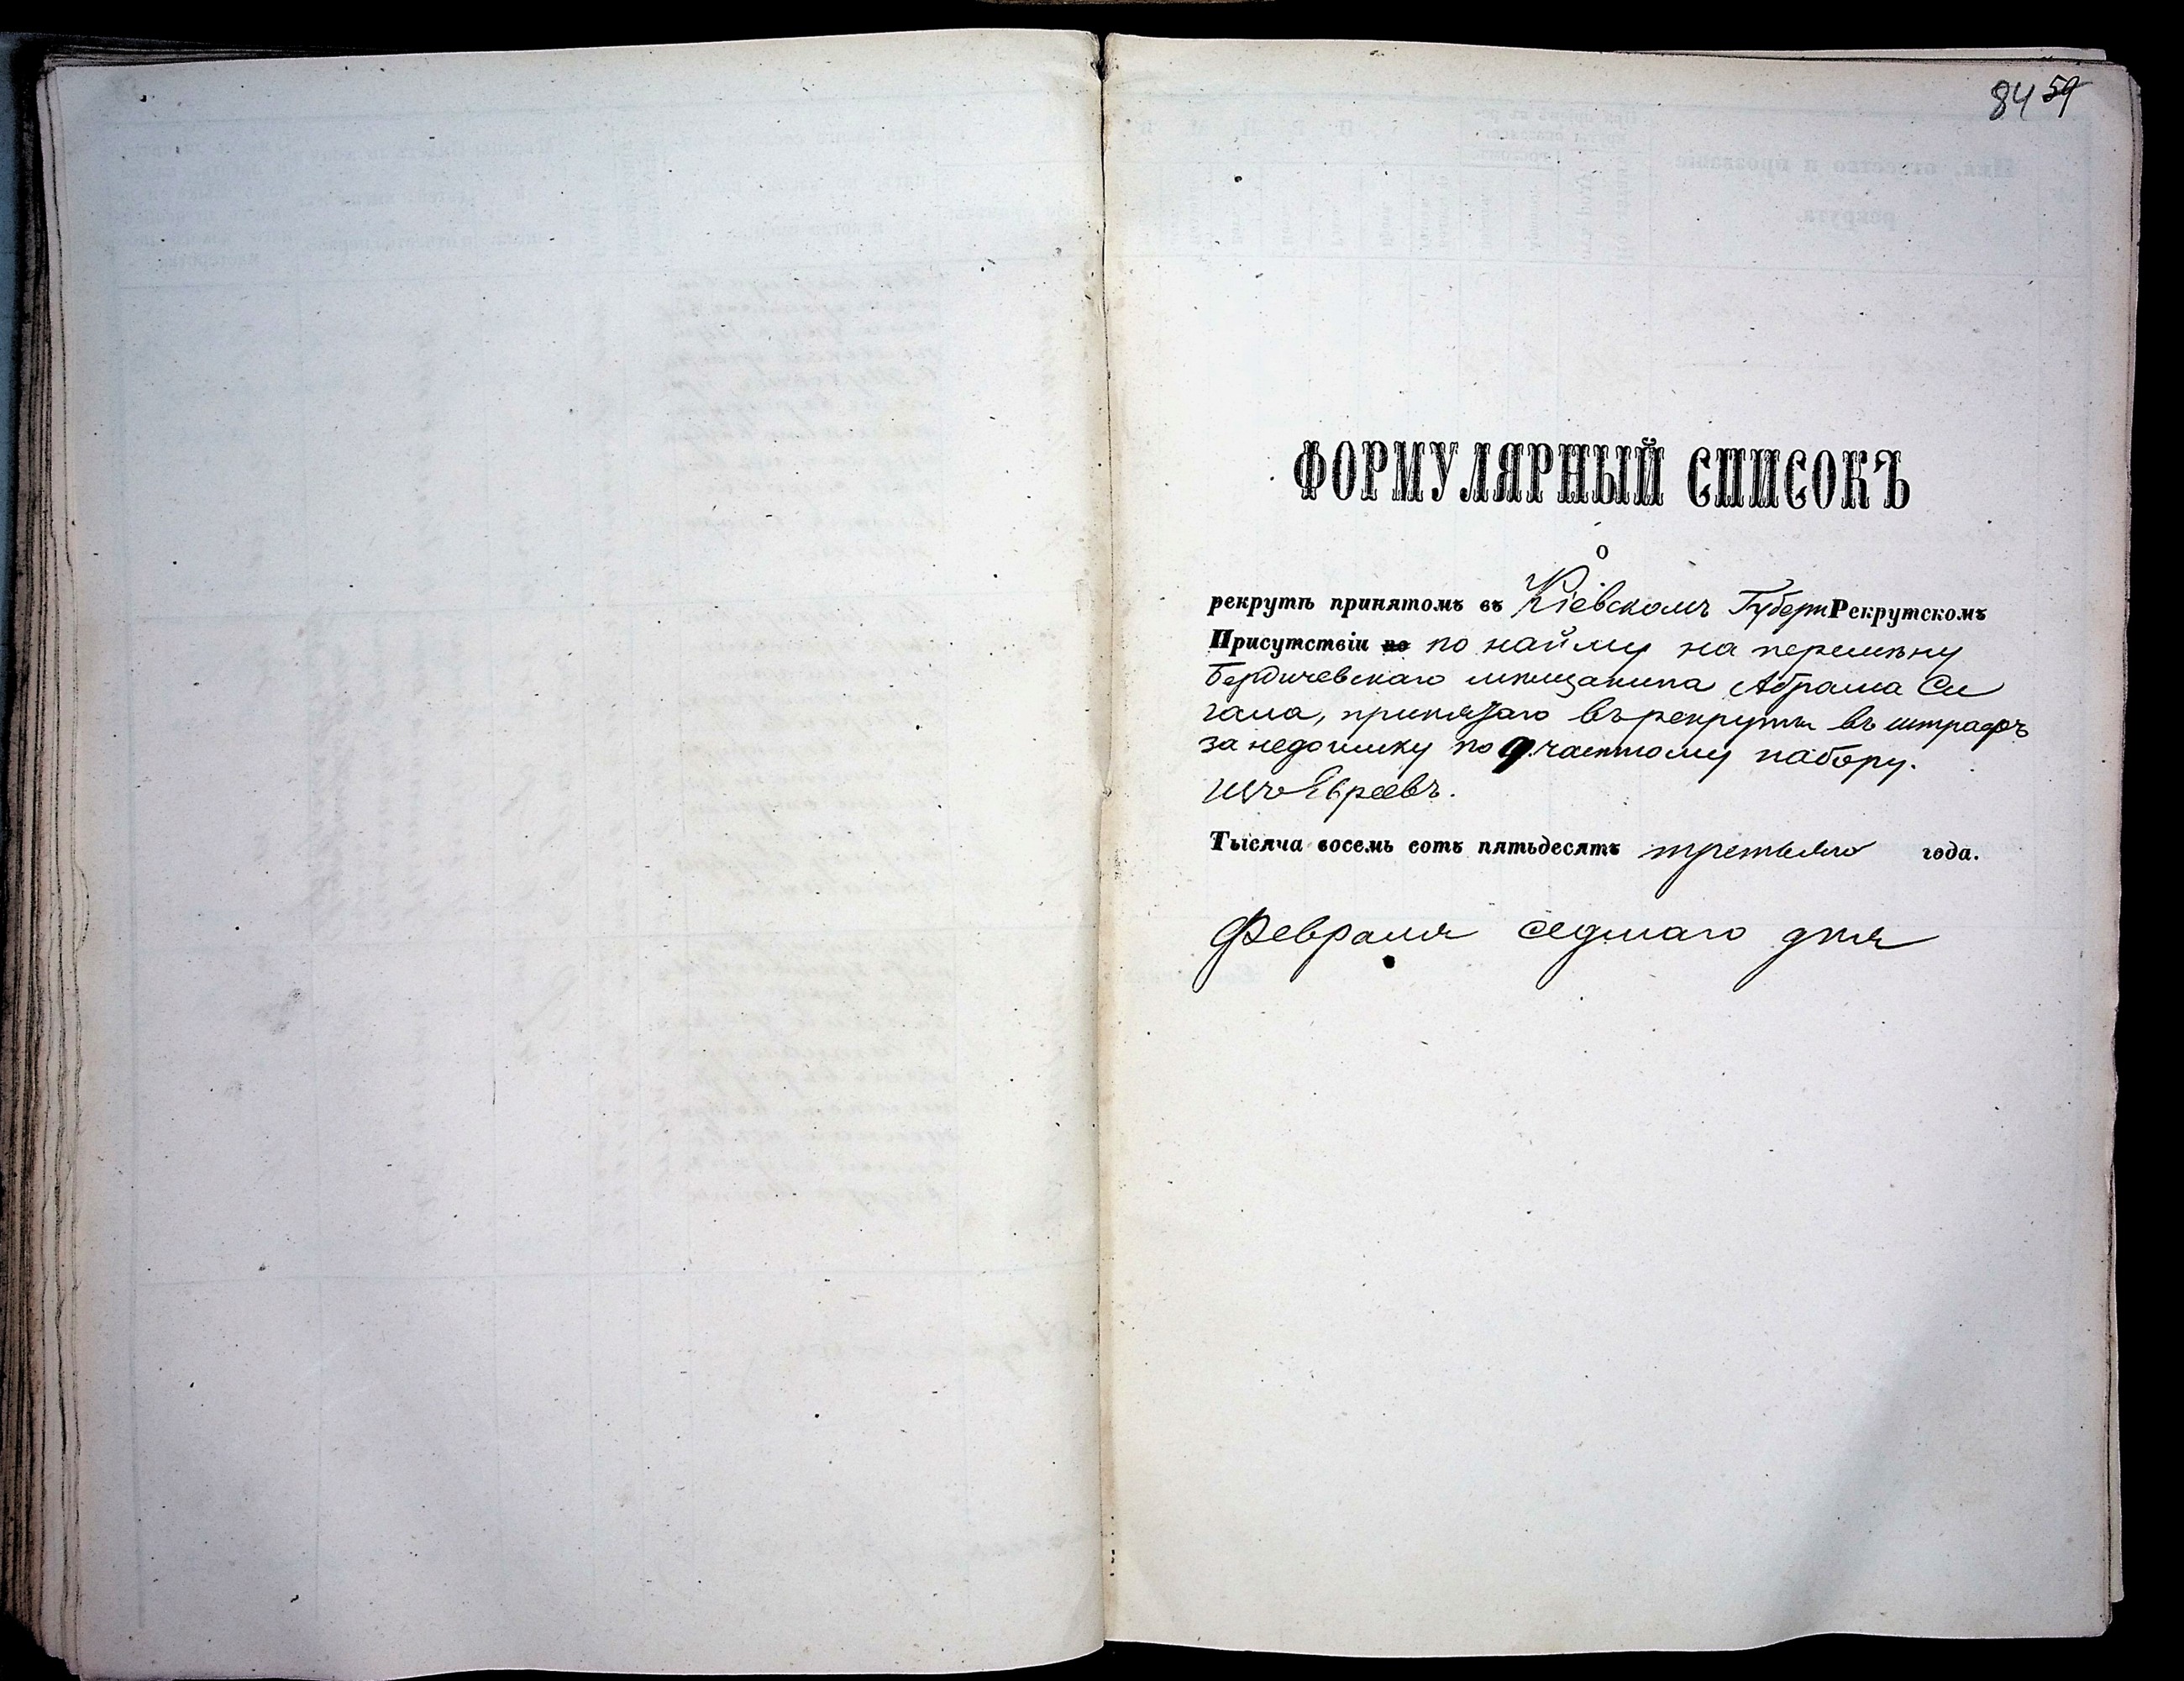 84 59
ФОРМУЛЯРНЫЙ СПИСОКЪ
о
рекрутѣ принятомъ въ Кіевскомъ Губерн Рекрутскомъ
Присутствіи по по найму на перемѣну
Бердичевскаго мѣщанина Абрама Си
гала, принятаго въ рекруты въ штрафъ
за недоимку по 9 частному набору.
изъ Евреевъ.
Тысяча восемь сотъ пятьдесятъ третьяго года.
Февраля седмаго дня